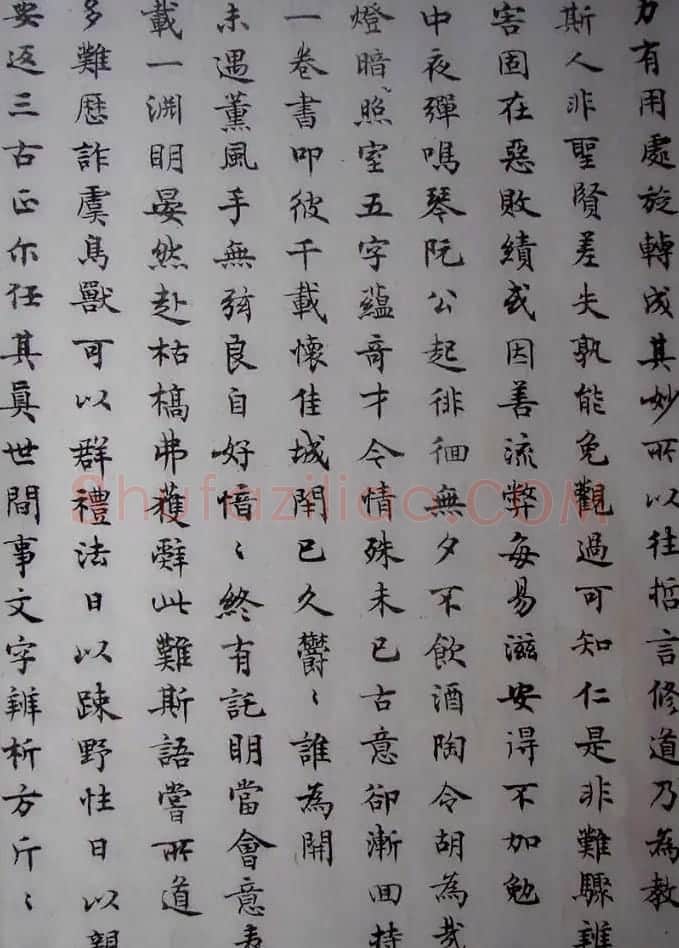 力有用處旋轉成其妙所以往哲言修道乃為教
斯人非聖賢差失孰能免觀過可知仁是非難驟辨
害固在惡敗績或因善流弊每易滋安得不加勉
中夜彈鳴琴阮公起徘徊無夕不飲酒陶令胡為哉
燈暗照室五字蘊奇才令情殊未已古意卻漸回持
一卷書叩彼千載懷佳城閉已久鬱〻誰為開
未遇薰風手無弦良自好愔〻終有託明當會意
載一淵明晏然赴枯槁弗蕕辭此難斯語嘗所道
多難歷詐虞鳥獸可以群禮法日以踈野性日以親
安返三古正尔任其真世間事文字辨析方斤〻
Shufaziliao.COM